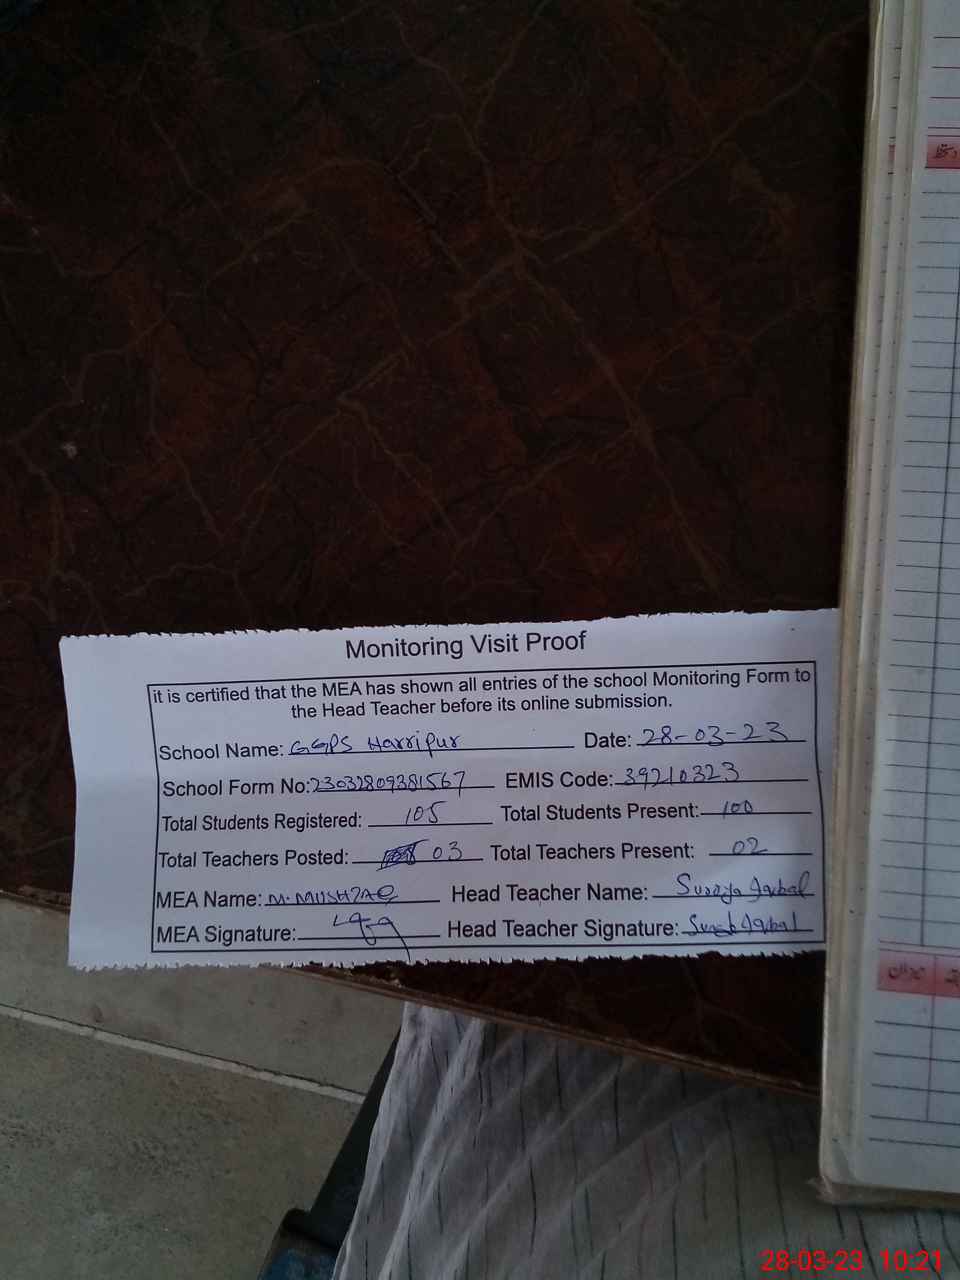 Monitoring Visit Proof
it is certified that the MEA has shown all entries of the school Monitoring Form to
the Head Teacher before its online submission.
School Name: GGPS Harripur Date: 28-03-23
School Form No: 23032809381567 EMIS Code: 39210323
Total Students Registered: 105 Total Students Present: 100
Total Teachers Posted: 03 Total Teachers Present: 02
MEA Name: M. MUSHTAQ Head Teacher Name: Surriya Iqbal
MEA Signature: Head Teacher Signature: Iqbal
میزان
28-03-23 10:21